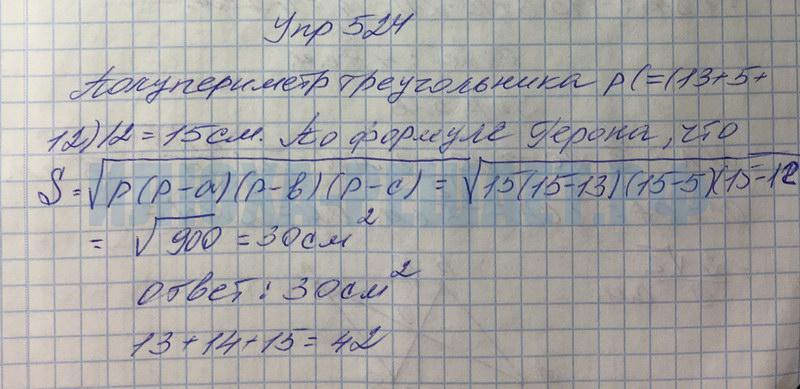 Упр 524
Полупериметр треугольника p(=(13+5+
12)/2=15см. По формуле Герона, что
S=√p(p-a)(p-b)(p-c) = √15(15-13)(15-5)(15-12
= √900 = 30см²
Ответ: 30см²
13+14+15=42